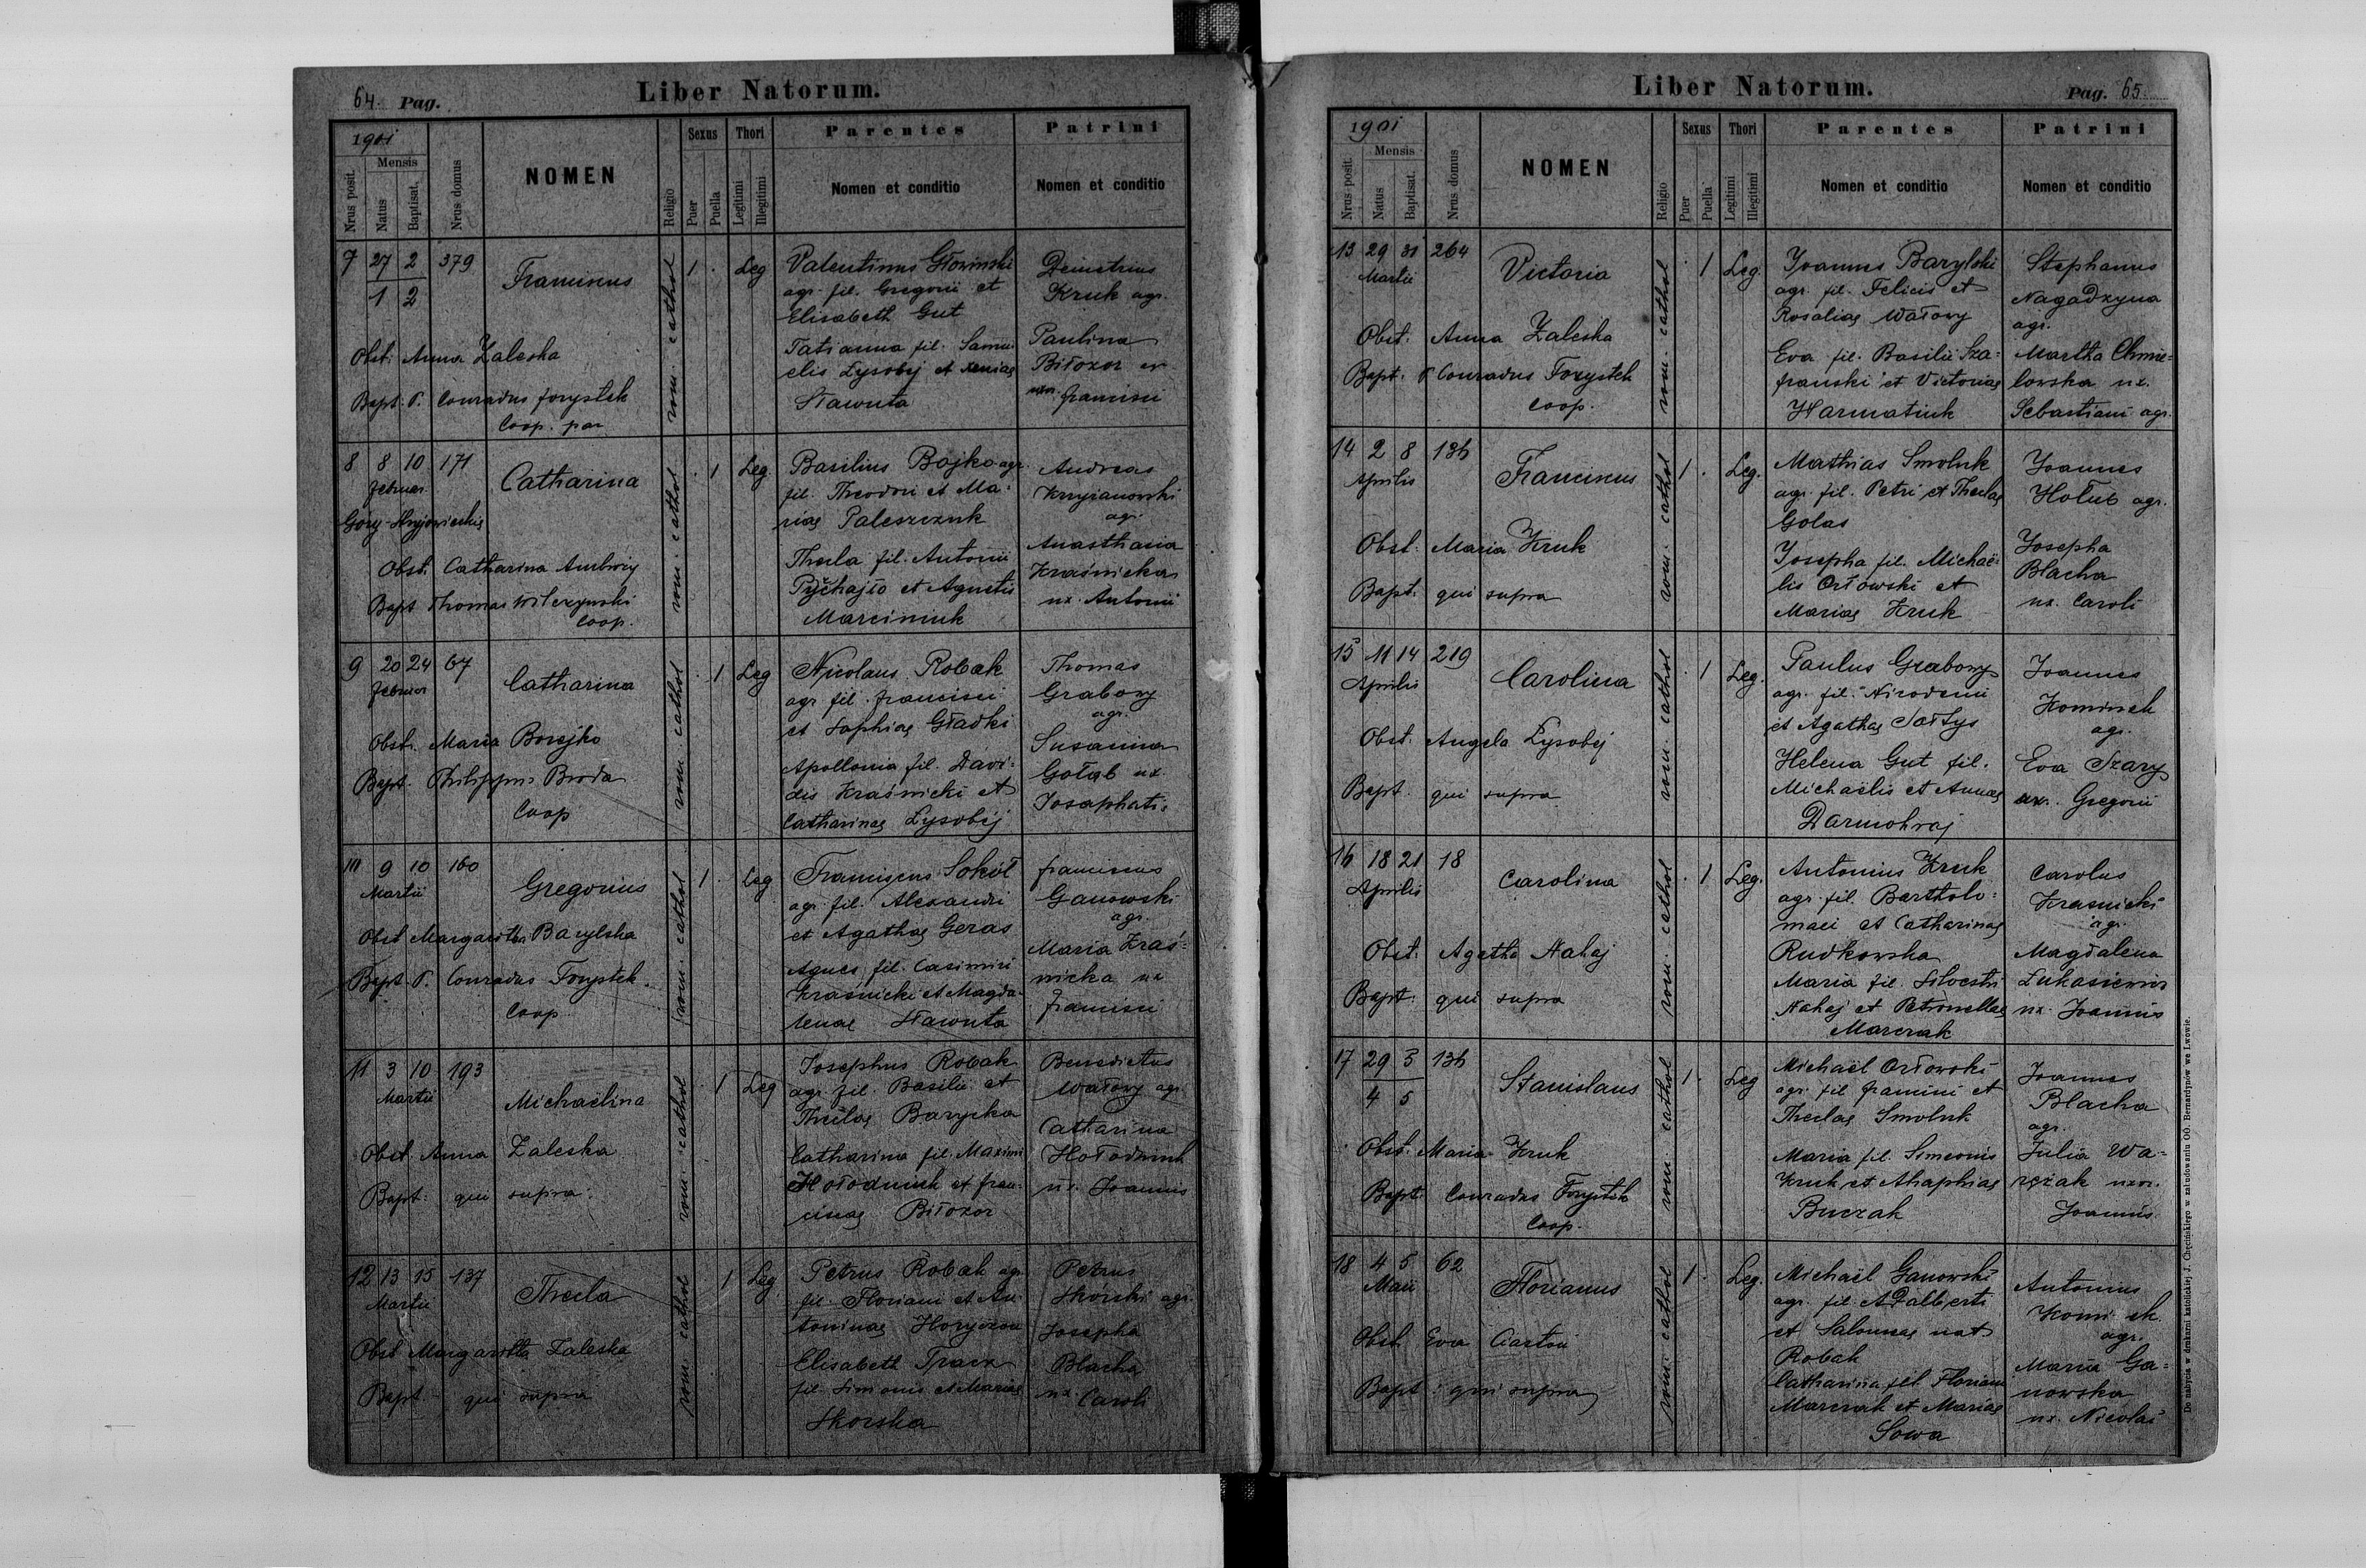 64. Pag.
Liber Natorum.
1901
Mensis
Nrus posit.
Natus
Baptisat.
Nrus domus
NOMEN
Religio
Sexus
Puer
Puella
Thori
Legitimi
Illegitimi
Parentes
Nomen et conditio
Patrini
Nomen et conditio
7 27 2 379
1 2
Franciscus
Obst. Anna Zaleska
Bapt. P. Conradus Forystek
Coop. par
rom. cathol
1 .
Leg
Valentinus Głowinski
agr. fil. Gregorii et
Elisabeth Gut
Tatianna fil. Samu-
elis Lysobij et Xenias
Sławuta
Demetrius
Kruk agr.
Paulina
Biłozor
uxor. Francisci
8 8 10 171
Februar.
Catharina
Obst. Catharina
Bapt Thomas Wilczynski
Coop.
rom. cathol
. 1
Leg
Basilius Bojko agr.
fil. Theodori et Ma-
riae Paleszczuk
Thecla fil. Antonii
et Agnetis
Marciniuk
Andreas
Krzyżanowski
agr.
Anasthasia
Kraśnicka
ux. Antonii
9 20 24 67
Februar
Catharina
Obst. Maria Borejko
Bapt. Philippus Broda
Coop
rom. cathol
. 1
Leg
Nicolaus Robak
agr fil. Francisci
et Sophiae Gładki
Apollonia fil. Davi-
dis Kraśnicki et
Catharinae Lysobij
Thomas
Grabowy
agr.
Susanna
Gołąb ux.
Josaphatis
10 9 10 160
Martii
Gregorius
Obst Margaritha Barylska
Bapt. P. Conradus Forystek
Coop
rom. cathol
1 .
Leg
Franciscus Sokół
agr. fil. Alexandri
et Agathae Geras
Agnes fil. Casimiri
Kraśnicki et Magda-
lenae Sławuta
Franciscus
Ganowski
agr.
Maria Kraś-
nicka ux
Francisci
11 3 10 193
Martii
Michaëlina
Obst. Anna Zaleska
Bapt: qui supra
rom. cathol
. 1
Leg
Josephus Robak
agr. fil. Basilii et
Theclae Barycka
Catharina fil. Maximi
Hołodniuk et Fran-
ciscae Biłozor
Benedictus
Wałowy agr.
Catharina
Hołodniuk
ux. Joannis
12 13 15 137
Martii
Thecla
Obst Margaritha Zaleska
Bapt. qui supra
rom. cathol
. 1
Leg
Petrus Robak agr.
fil. Floriani et An-
toninae Horyczon
Elisabeth Tracz
fil. Simonis et Mariae
Skorska
Petrus
Skorski agr.
Josepha
Blacha
ux. Caroli
Liber Natorum.
Pag. 65.
1901
Mensis
Nrus posit.
Natus
Baptisat.
Nrus domus
NOMEN
Religio
Sexus
Puer
Puella
Thori
Legitimi
Illegitimi
Parentes
Nomen et conditio
Patrini
Nomen et conditio
13 29 31 264
Martii
Victoria
Obst. Anna Zaleska
Bapt. P Conradus Forystek
Coop.
rom. cathol
. 1
Leg.
Joannes Barylski
agr. fil. Felicis et
Rosaliae Wałowy
Eva fil. Basilii Sza-
franski et Victoriae
Harmatiuk
Stephanus
Nagadzyna
agr.
Martha Chmie-
lowska ux.
Sebastiani agr.
14 2 8 136
Aprilis
Franciscus
Obst. Maria Kruk
Bapt. qui supra
rom. cathol
1 .
Leg.
Mathias Smoluk
agr. fil. Petri et Theclae
Golas
Josepha fil. Michaë-
lis Orłowski et
Mariae Kruk
Joannes
Hołub agr.
Josepha
Blacha
ux. Caroli
15 11 14 219
Aprilis
Carolina
Obst. Angela Lysobij
Bapt. qui supra
rom. cathol
. 1
Leg.
Paulus Grabowy
agr. fil. Nicodemi
et Agathae Sołtys
Helena Gut fil.
Michaëlis et Annae
Darmohraj
Joannes
Kominek
agr.
Eva Szary
uxr. Gregorii
16 18 21 18
Aprilis
Carolina
Obst. Agatha Nahaj
Bapt. qui supra
rom. cathol
. 1
Leg.
Antonius Kruk
agr. fil. Bartholo-
maei et Catharinae
Rudkowska
Maria fil. Silvestri
Nahaj et Petronellae
Marczak
Carolus
Krasnicki
agr.
Magdalena
Lukasiewicz
ux. Joannis
17 29 5 136
4 5
Stanislaus
Obst. Maria Kruk
Bapt. Conradus Forystek
Coop.
rom. cathol
1 .
Leg
Michaël Orłowski
agr. fil Francisci et
Theclae Smoluk
Maria fil. Simeonis
Kruk et Ahaphiae
Buczak
Joannes
Blacha
agr.
Julia Wa-
rężak uxor.
Joannis.
18 4 5 62
Maii
Florianus
Obst. Eva Castoń
Bapt: qui supra
rom. cathol
1 .
Leg.
Michaël Ganowski
agr. fil. Adalberti
et Salomeae nat
Robak
Catharina fil. Floriani
Marczak et Mariae
Sowa
Antonius
agr.
Maria Ga-
nowska
ux. Nicolai
Do nabycia w drukarni katolickiej J. Chęcińskiego w zabudowaniu OO. Bernardynów we Lwowie.